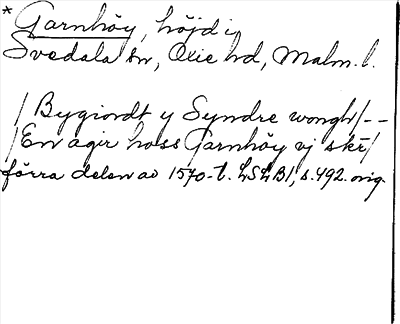 * Garnhöy, höjd i
Svedala sn, Oxie hd, Malm. l.
/ Bygiordt y Syndre wongh /--
/ En agir hoss Garnhöy vj skr̄ /
förra delen av 1570-t. LSLB1, s. 492. orig.